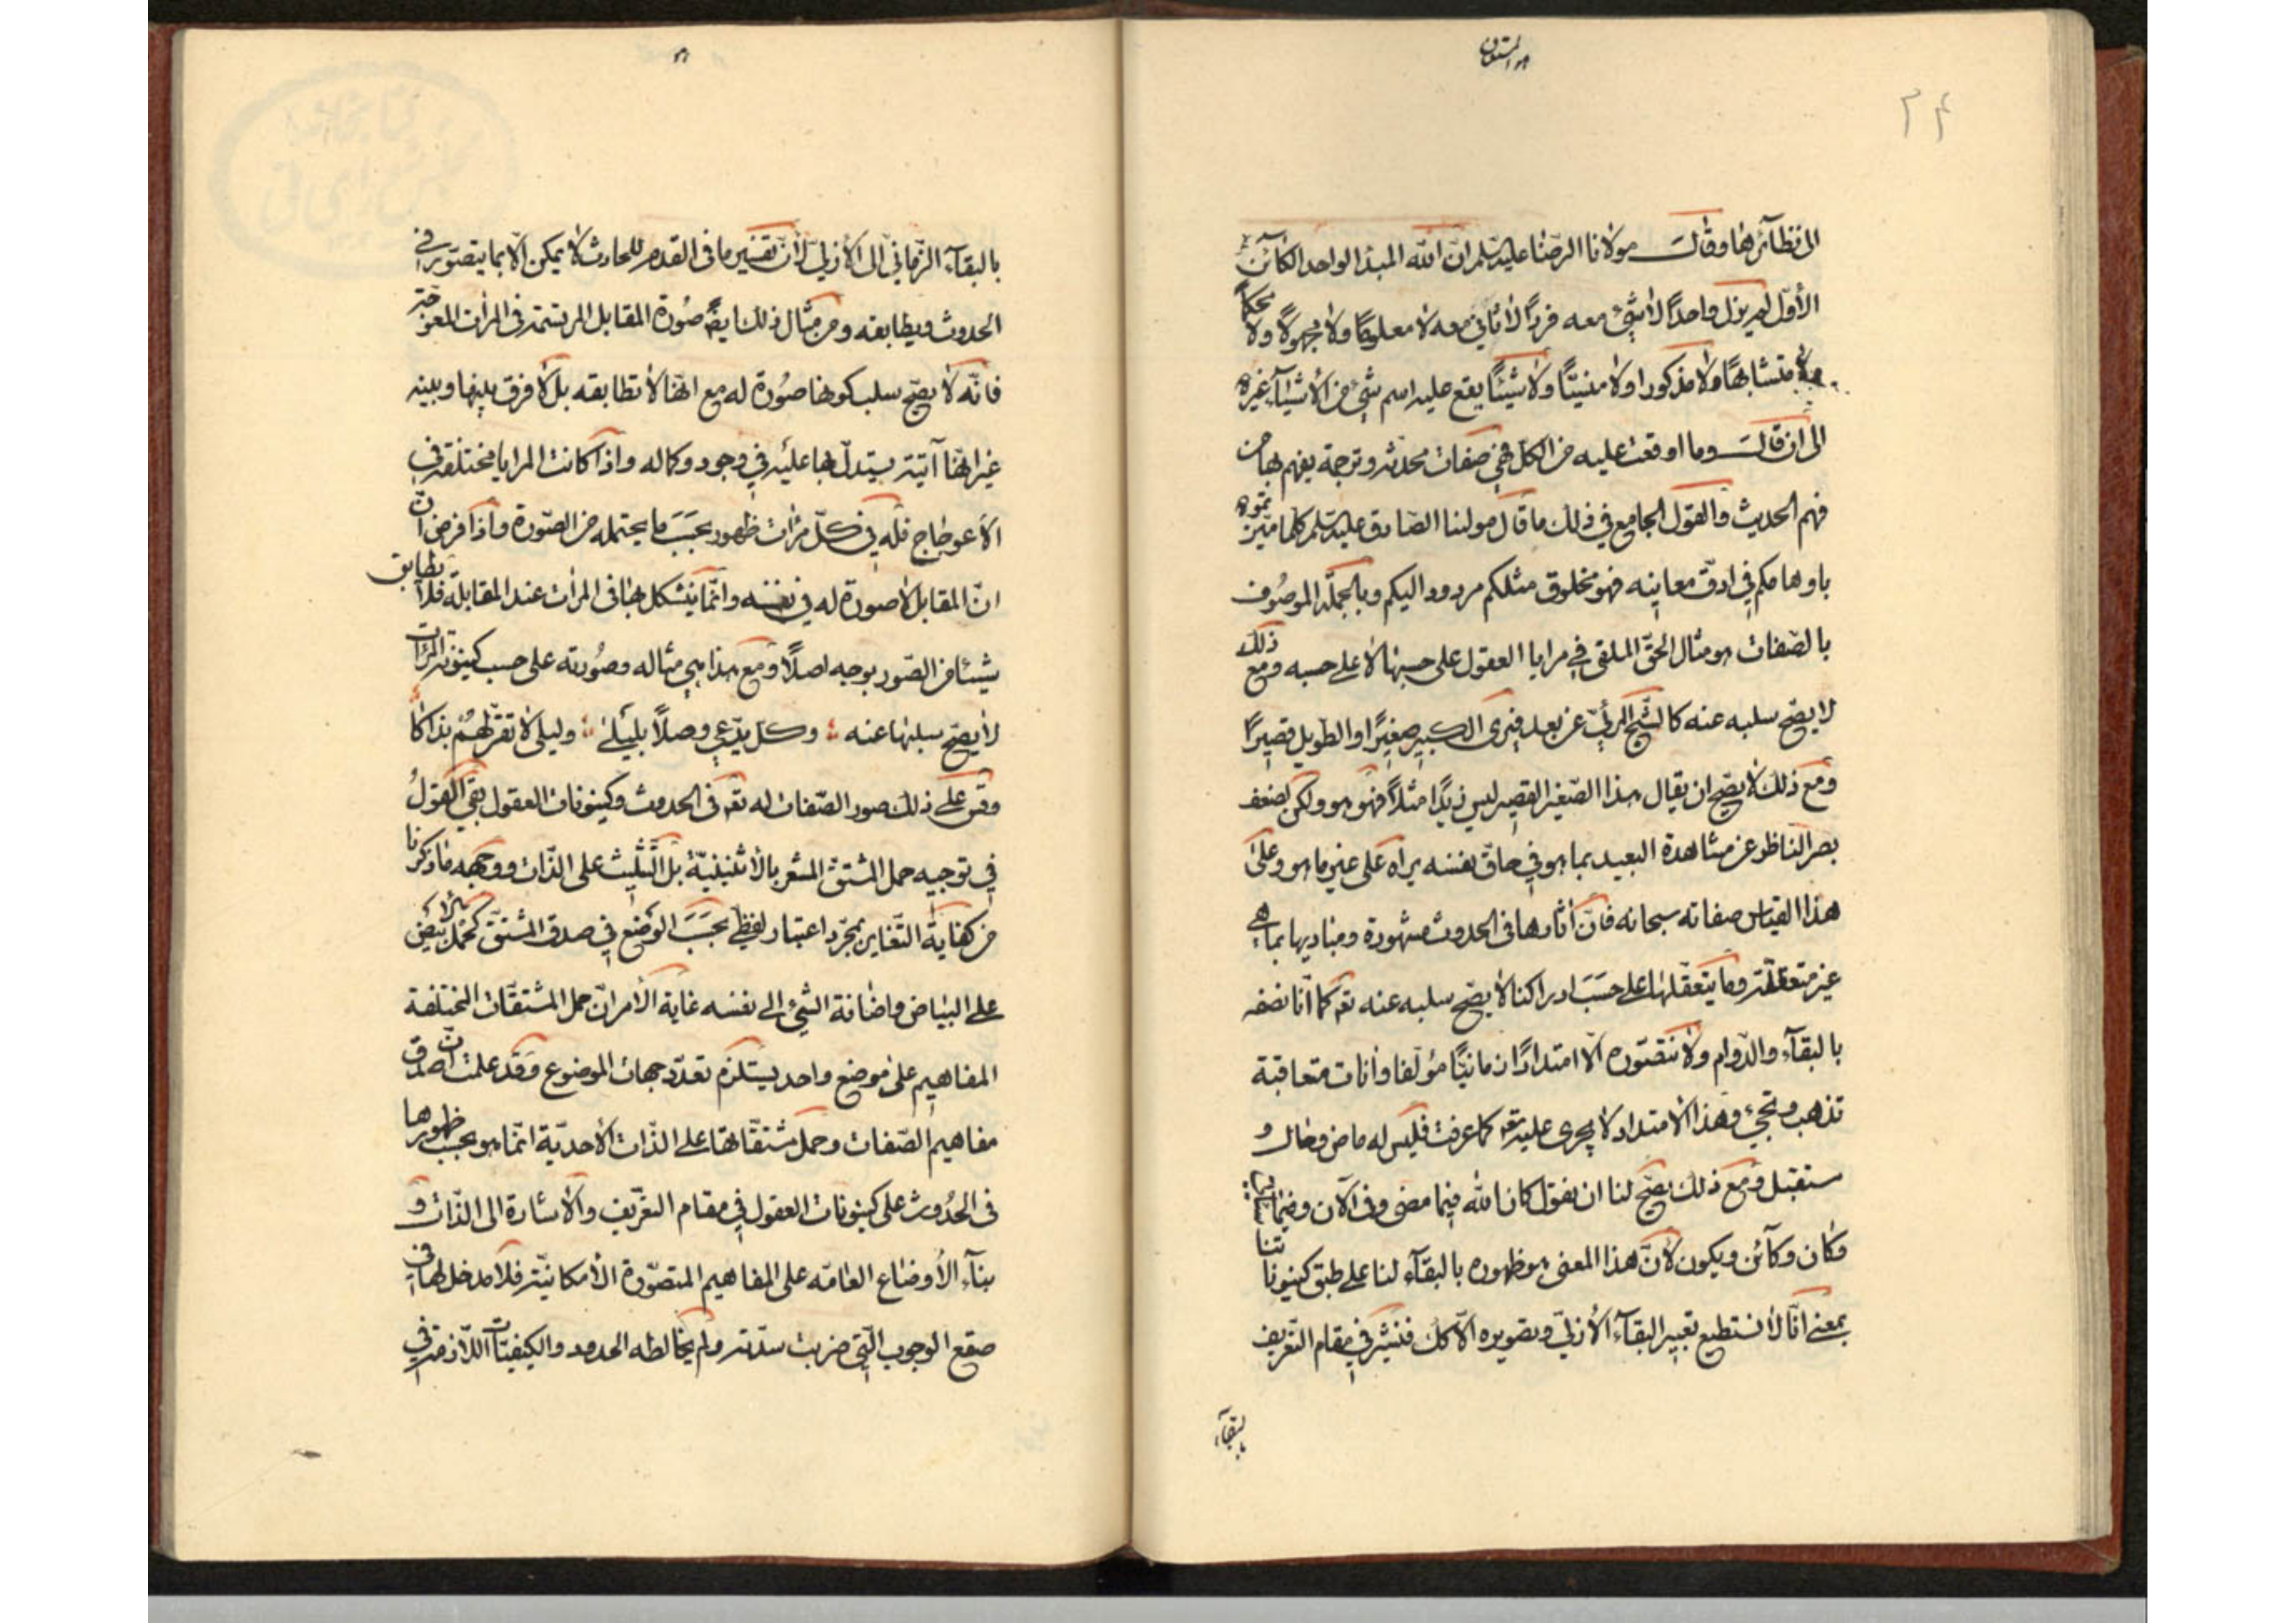 هو المستعان
۲۴
الى نظآئرها وقال مولانا الرضا عليه السلم ان الله المبدا الواحد الكآئن
الأول لم يزل واحداً لا شئ معه فرداً لا ثاني معه لا معلوماً ولا مجهولاً ولا محكماً
ولا متشابهاً ولا مذكورا ولا منسيّاً ولا شيئاً يقع عليه اسم شئ من الأشيآء غيره
الى ان قال وما اوقعت عليه من الكل فهي صفات محدثة وترجمة يفهم بها من
فهم الحديث والقول الجامع في ذلك ما قال مولينا الصادق عليه السلم كلما ميزتموه
باوهامكم في ادق معانيه فهو مخلوق مثلكم مردود اليكم وبالجملة الموصوف
بالصفات هو مثال الحق الملقى في مرايا العقول على حسبها لا على حسبه ومع ذلك
لا يصح سلبه عنه كالشبح المرئي عن بعد فيرى الكبير صغيراً او الطويل قصيراً
ومع ذلك لا يصح ان يقال هذا الصغير القصير ليس زيداً مثلاً فهو هو ولكن لضعف
بصر الناظر عن مشاهدة البعيد بما هو في حاق نفسه يراه على غير ما هو وعلى
هذا القياس صفاته سبحانه فان آثارها في الحدوث مشهورة ومباديها بما هي
غير متعقلة وما يتعقلها على حسب ادراكنا لا يصح سلبه عنه تعه كما انا نصفه
بالبقآء والدوام ولا نتصوره الا امتداداً زمانيّاً مؤلفا وآنات متعاقبة
تذهب وتجئ وهذا الامتداد لا يجرى عليه تعه كما عرفت فليس له ماض وحال و
ستقبل ومع ذلك يصح لنا ان نقول كان الله فيما مضى وفى الآن وفيما
وكان وكآئن ويكون لأن هذا المعنى هو ظهوره بالبقآء لنا على طبق كينوناتنا
بمعنى انا لا نستطيع تعبير البقآء الأزلي وتصويره الا كك فنشير في مقام التعريف
بالبقآء
بالبقآء الزماني الى الأزلي لأن تفسير ما فى القدم للحادث لا يمكن الا بما يتصور في
الحدوث ويطابقه ومن مثال ذلك ايضاً صورة المقابل المرتسمة فى المرآت المعوجة
فانه لا يصح سلب كونها صورة له مع انها لا تطابقه بل لا فرق بينها وبينه
غير انها آتية يستدل بها عليه في وجود وكماله واذا كانت المرايا مختلفة في
الاعوجاج فله في كل مرآت ظهور بحسب ما يحتمله من الصورة واذا فرض ان
ان المقابل لا صورة له في نفسه وانما يتشكل بها فى المرآت عند المقابلة فلا تطابق
شيئا من الصور بوجه اصلاً ومع هذا هي مثاله وصورته على حسب كينونة المرآت
لا يصح سلبها عنه وكل يدعي وصلاً بليلى وليلى لا تقر لهم بذاكا
وقس على ذلك صور الصفات له تعه فى الحدوث وكينونات العقول بقي القول
في توجيه حمل المشتق المشعر بالاثنينية بل التثليث على الذات ووجهه ما ذكرنا
من كفاية التغاير بمجرد اعتبار لفظي بحسب الوضع في صدق المشتق كحمل الأبيض
على البياض واضافة الشئ الى نفسه غاية الأمر ان حمل المشتقات المختلفة
المفاهيم على موضع واحد يستلزم تعدد جهات الموضوع وقد علمت ان صدق
مفاهيم الصفات وحمل مشتقاتها على الذات الأحدية انما هو بحسب ظهورها
فى الحدوث على كينونات العقول في مقام التعريف والاشارة الى الذات و
بنآء الأوضاع العامه على المفاهيم المتصورة الأمكانية فلا مدخل لها في
صقع الوجوب التي ضربت سدته ولم يخالطه الحدود والكيفيات اللازمة في